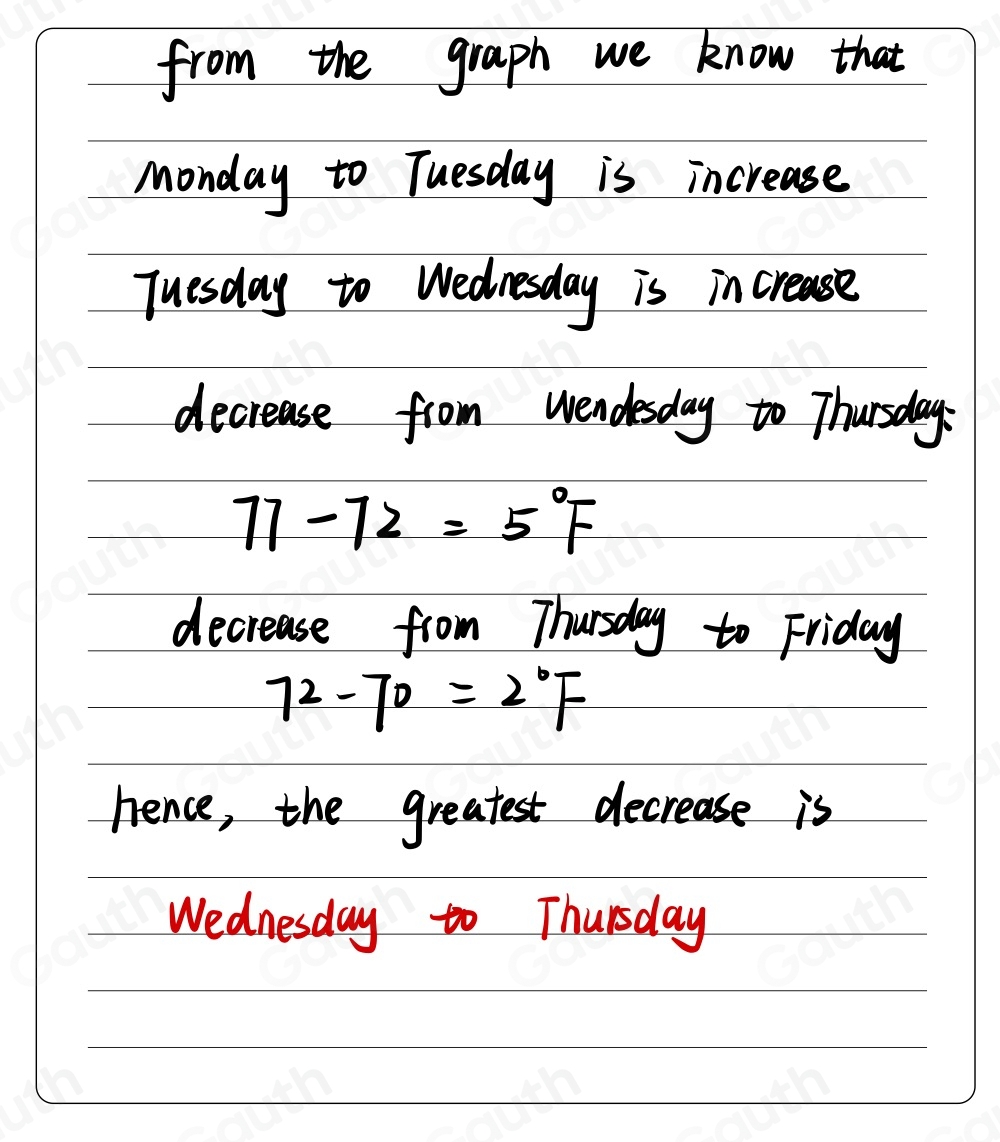 from the graph we know that
Monday to Tuesday is increase
Tuesday to Wednesday is increase
decrease from Wendesday to Thursday:
77 - 72 = 5°F
decrease from Thursday to Friday
72 - 70 = 2°F
hence, the greatest decrease is
Wednesday to Thursday